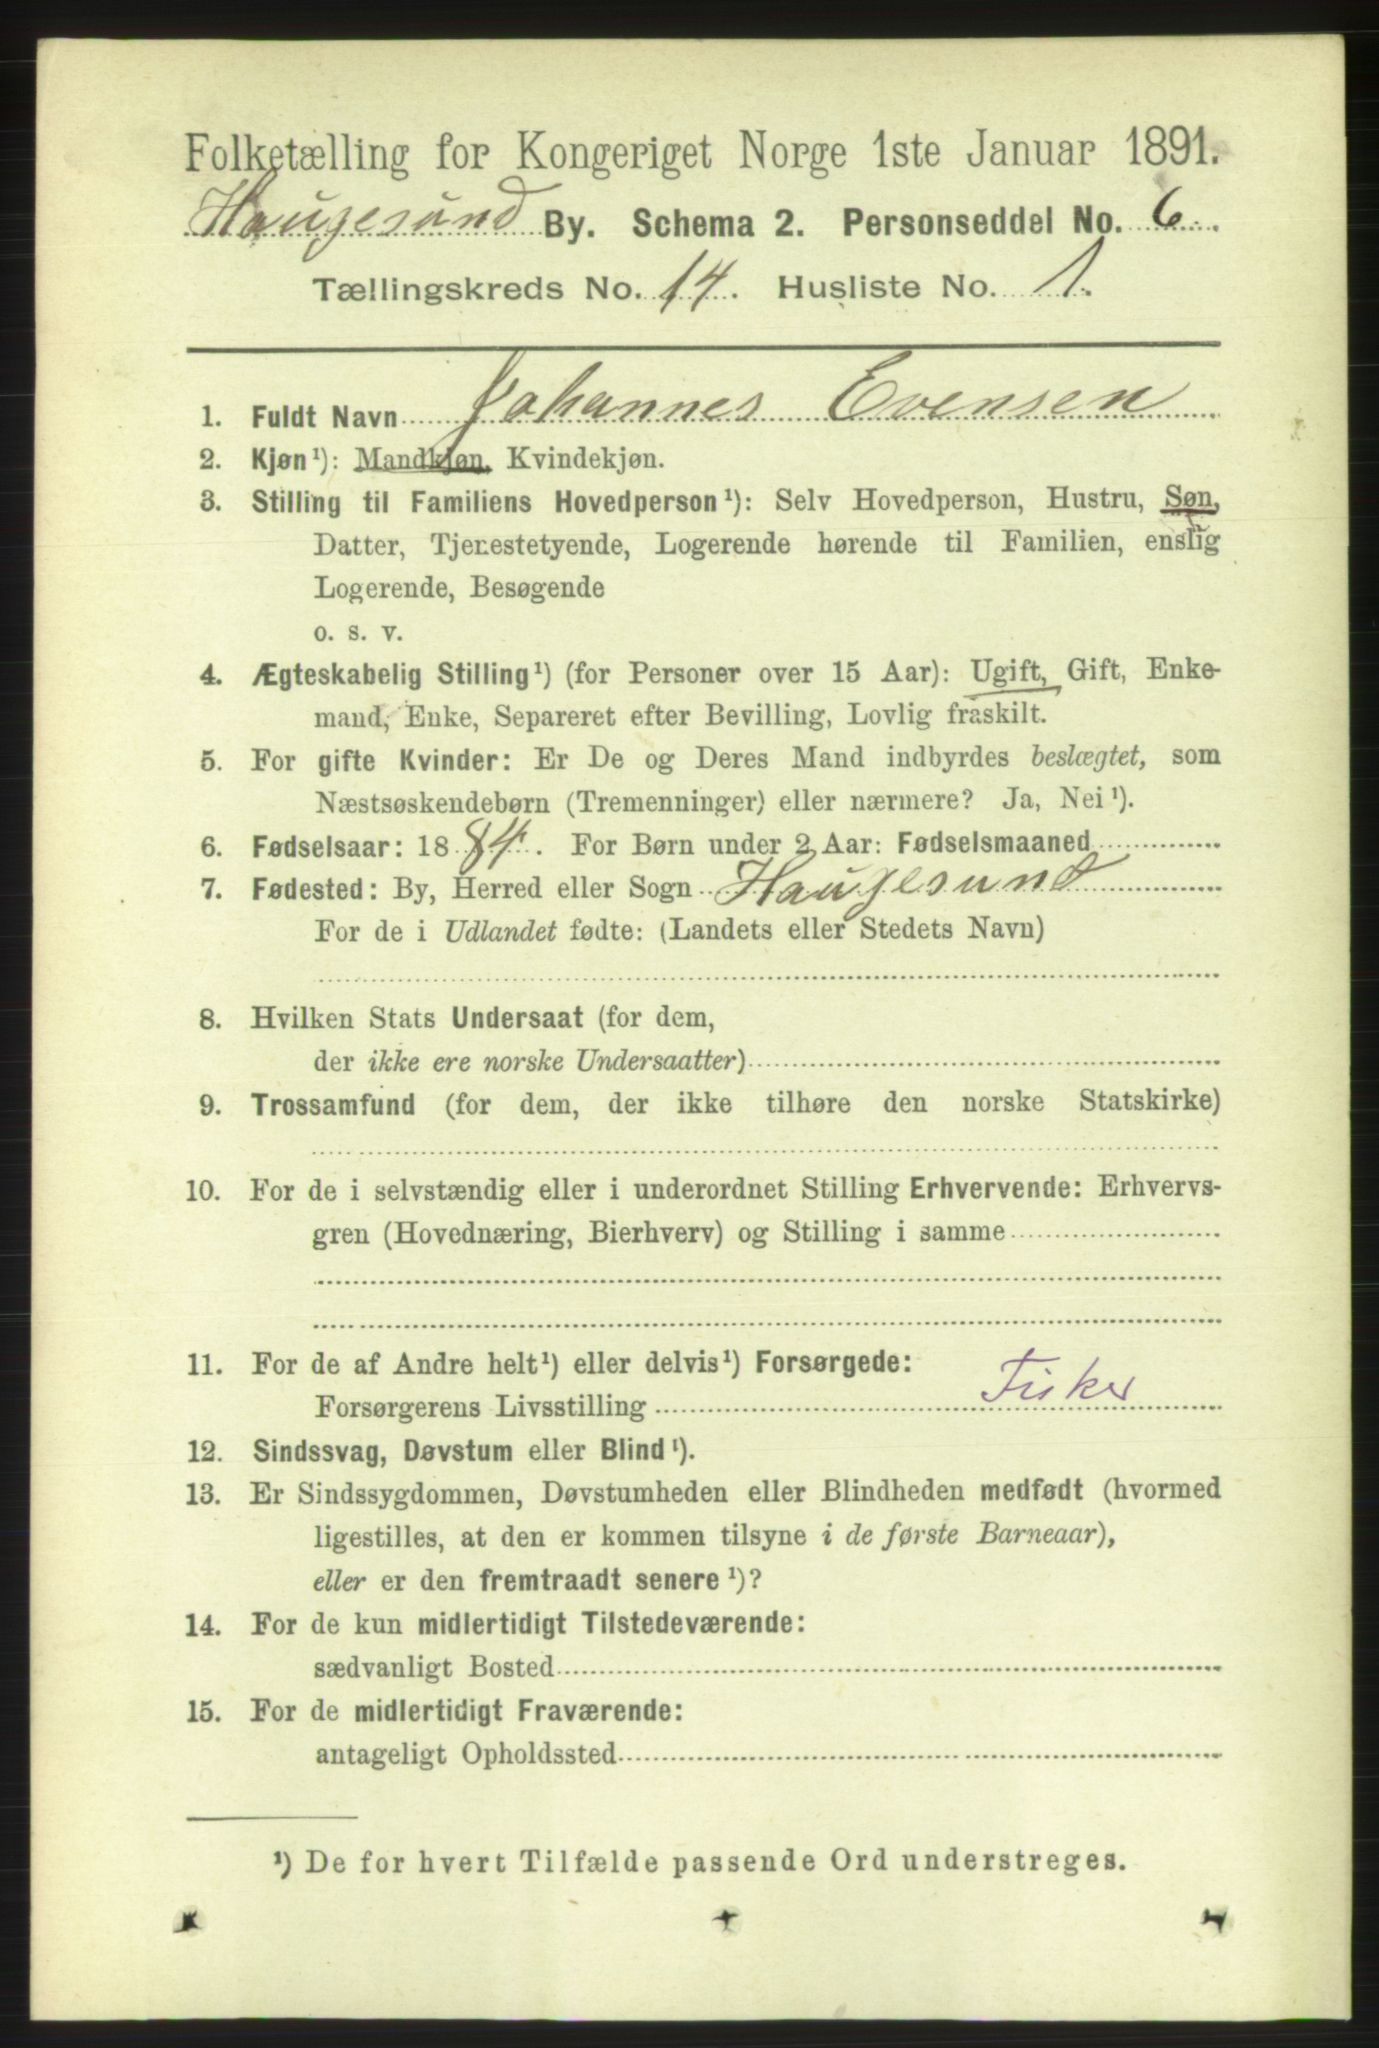 Folketælling for Kongeriget Norge 1ste Januar 1891.
Haugesund By. Schema 2. Personseddel No. 6.
Tællingskreds No. 14. Husliste No. 1.
1. Fuldt Navn Johannes Evensen
2. Kjøn¹): Mandkjøn, Kvindekjøn.
3. Stilling til Familiens Hovedperson¹): Selv Hovedperson, Hustru, Søn,
Datter, Tjenestetyende, Logerende hørende til Familien, enslig
Logerende, Besøgende
o. s. v.
4. Ægteskabelig Stilling¹) (for Personer over 15 Aar): Ugift, Gift, Enke-
mand, Enke, Separeret efter Bevilling, Lovlig fraskilt.
5. For gifte Kvinder: Er De og Deres Mand indbyrdes beslægtet, som
Næstsøskendebørn (Tremenninger) eller nærmere? Ja, Nei¹).
6. Fødselsaar: 1884. For Børn under 2 Aar: Fødselsmaaned
7. Fødested: By, Herred eller Sogn Haugesund
For de i Udlandet fødte: (Landets eller Stedets Navn)
8. Hvilken Stats Undersaat (for dem,
der ikke ere norske Undersaatter)
9. Trossamfund (for dem, der ikke tilhøre den norske Statskirke)
10. For de i selvstændig eller i underordnet Stilling Erhvervende: Erhvervs-
gren (Hovednæring, Bierhverv) og Stilling i samme
11. For de af Andre helt¹) eller delvis¹) Forsørgede:
Forsørgerens Livsstilling Fisker
12. Sindssvag, Døvstum eller Blind¹).
13. Er Sindssygdommen, Døvstumheden eller Blindheden medfødt (hvormed
ligestilles, at den er kommen tilsyne i de første Barneaar),
eller er den fremtraadt senere¹)?
14. For de kun midlertidigt Tilstedeværende:
sædvanligt Bosted
15. For de midlertidigt Fraværende:
antageligt Opholdssted
¹) De for hvert Tilfælde passende Ord understreges.